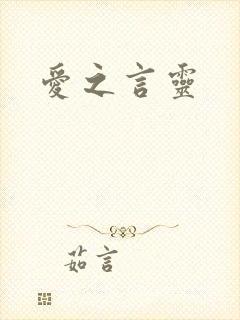 愛之言靈
茹言